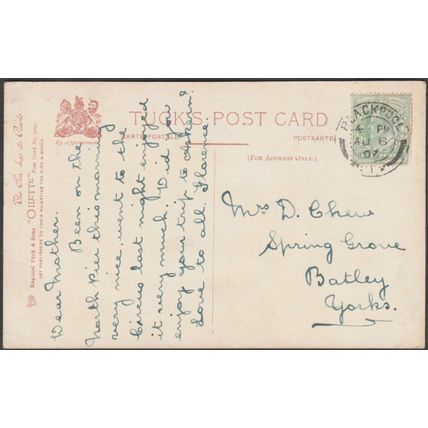 TUCK'S POST CARD
CARTE POSTALE
POSTKARTE
(FOR ADDRESS ONLY.)
By Appointment
Raphael Tuck & Sons' "OILETTE"
BLACKPOOL
4 PM
AU 8
07
Dear Mother.
Been on the
North Pier this morning
very nice, went to the
Circus last night enjoyed
it very much. Did you
enjoy your trip to
Love to all. Florence
Mrs D. Chew
Spring Grove
Batley
Yorks.